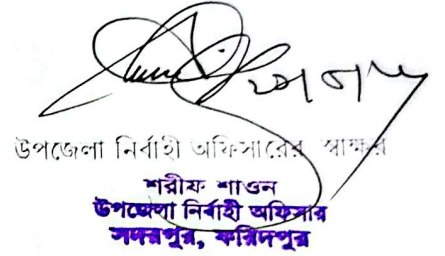 উপজেলা নির্বাহী অফিসারের স্বাক্ষর
শরীফ শাওন
উপজেলা নির্বাহী অফিসার
সদরপুর, ফরিদপুর